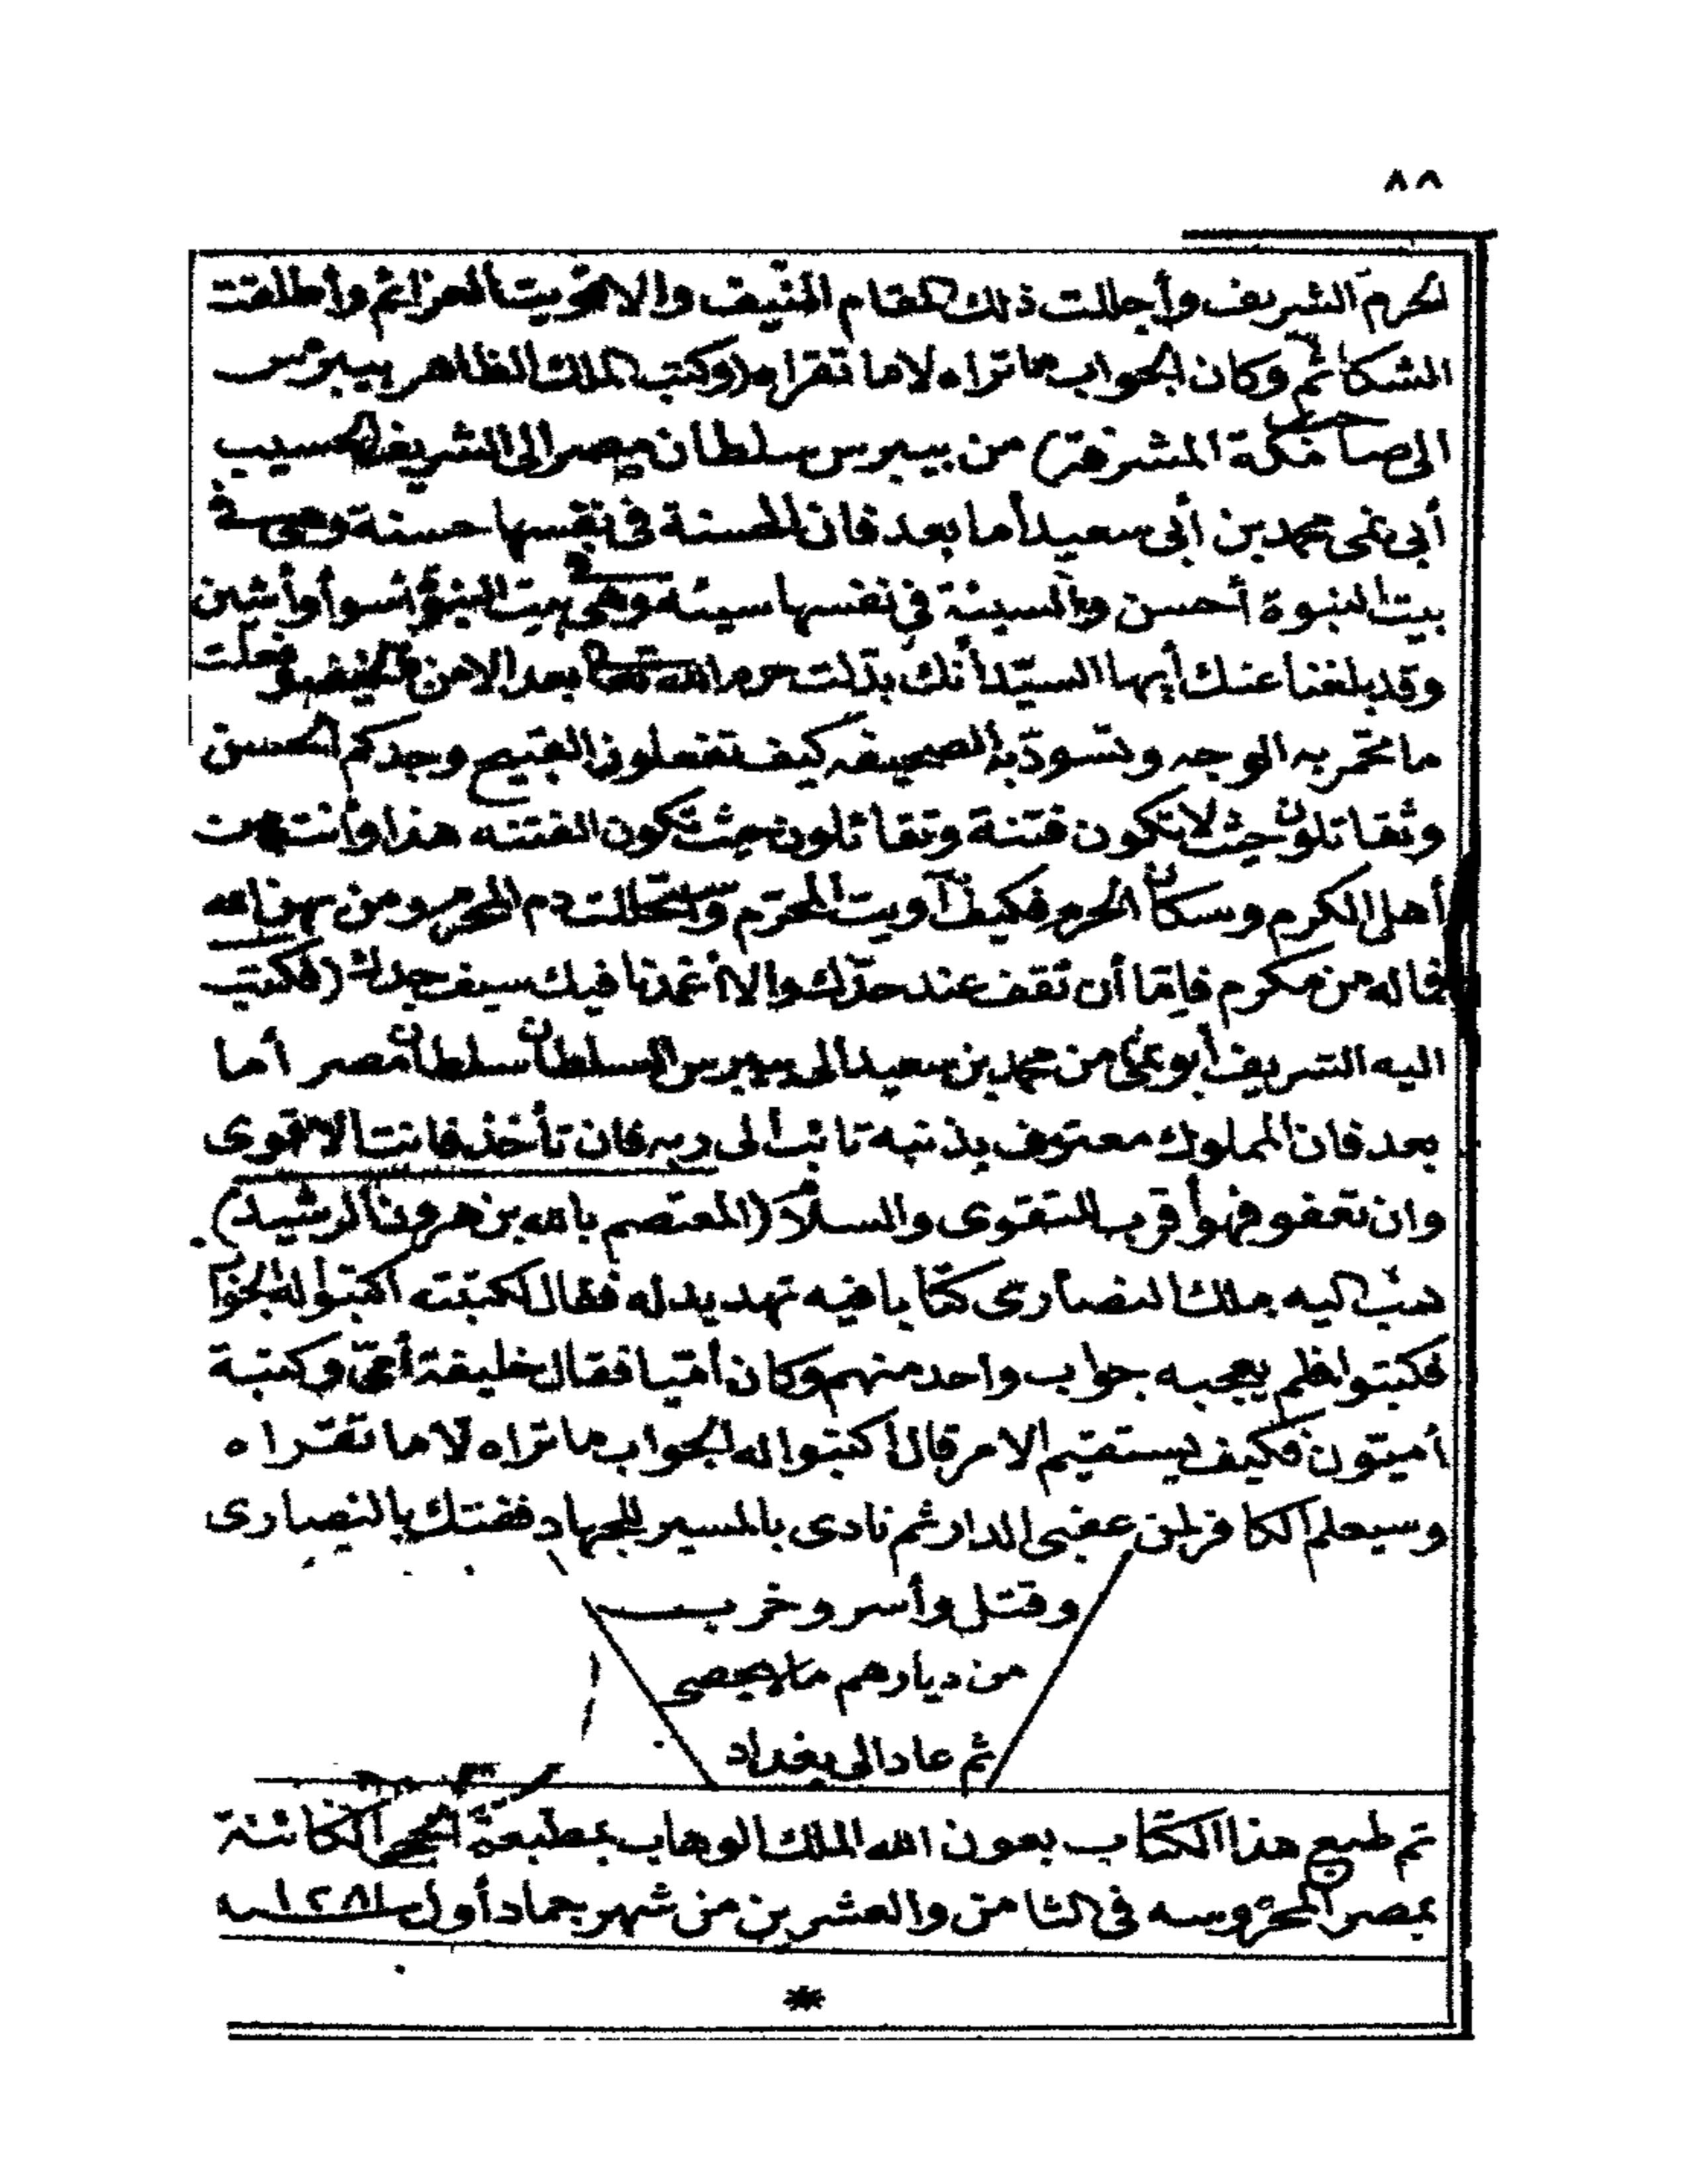 ٨٨
لحرم الشريف وأجللت ذلك المقام المنيف والا قويت العزائم وأطلقت
الشكائم وكان الجواب ما تراه لا ما تقراه (وكتب الملك الظاهر بيبرس
الى صاحب مكة المشرفة) من بيبرس سلطان مصر الى الشريف الحسيب
أبى نمى محمد بن أبى سعيد أما بعد فان الحسنة فى نفسها حسنة وهى فى
بيت النبوة أحسن والسيئة فى نفسها سيئة وهى فى بيت النبوة أسوأ وأشين
وقد بلغنا عنك أيها السيد أنك بدلت حرم الله تعالى بعد الامن بالخيفه وفعلت
ما يحمر به الوجه وتسود به الصحيفه كيف تفعلون القبيح وجدكم الحسن
وتقاتلون حيث لا تكون فتنة وتقاتلون حيث تكون الفتنه هذا وأنت من
أهل الكرم وسكان الحرم فكيف آويت المحرم واستحللت دم المحرم ومن يهن الله
فما له من مكرم فاما أن تقف عند حدك والا أغمدنا فيك سيف جدك (فكتب
اليه الشريف أبو نمى) من محمد بن سعيد الى بيبرس السلطان سلطان مصر أما
بعد فان المملوك معترف بذنبه تائب الى ربه فان تأخذ فانت الاقوى
وان تعفو فهو أقرب للتقوى والسلام (المعتصم بالله بن هرون الرشيد)
كتب اليه ملك النصارى كتابا فيه تهديد له فقال لكتبته اكتبوا له الجواب
فكتبوا فلم يعجبه جواب واحد منهم وكان أميا فقال خليفة أمى وكتبة
أميون فكيف يستقيم الامر قال اكتبوا له الجواب ما تراه لا ما تقراه
وسيعلم الكافر لمن عقبى الدار ثم نادى بالمسير للجهاد ففتك بالنصارى
وقتل وأسر وخرب
من ديارهم ما لا يحصى
ثم عاد الى بغداد
تم طبع هذا الكتاب بعون الله الملك الوهاب بمطبعة الكائنة
بمصر المحروسه فى الثامن والعشرين من شهر جماد أول سنه ١٢٨١